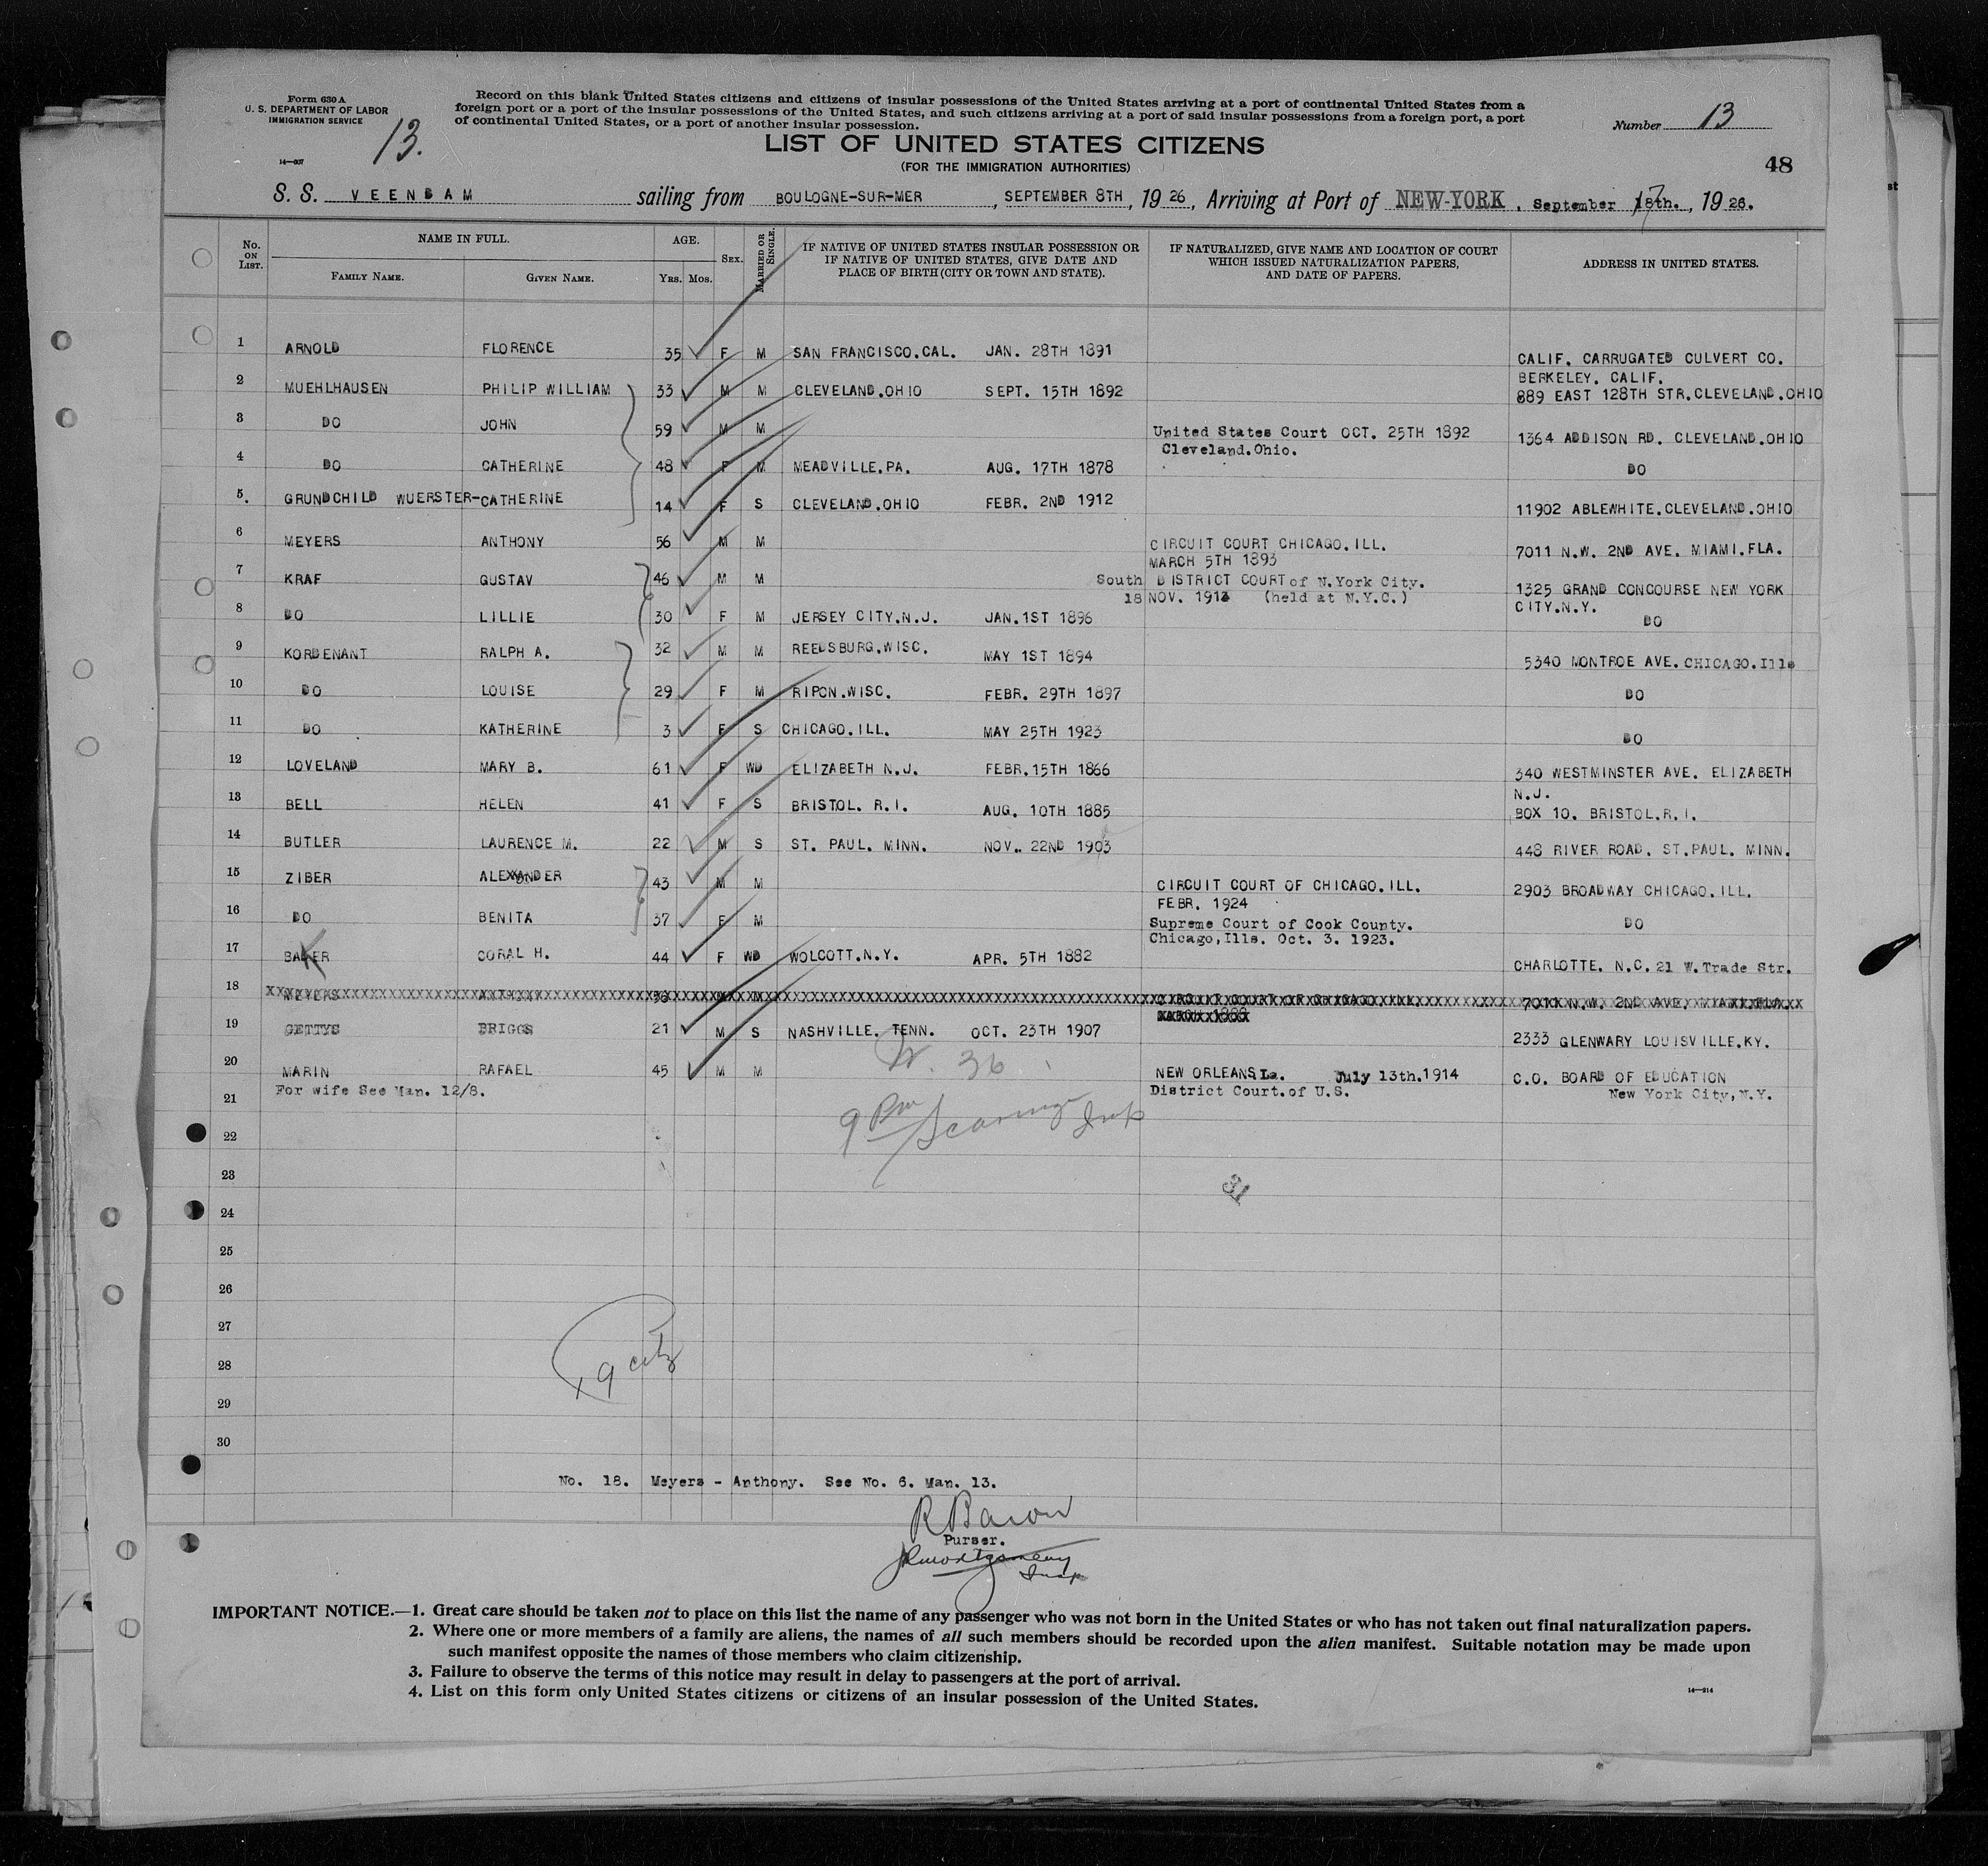 Form 630 A
U. S. DEPARTMENT OF LABOR
IMMIGRATION SERVICE
14—607
13.
Record on this blank United States citizens and citizens of insular possessions of the United States arriving at a port of continental United States from a
foreign port or a port of the insular possessions of the United States, and such citizens arriving at a port of said insular possessions from a foreign port, a port
of continental United States, or a port of another insular possession.
Number 13
LIST OF UNITED STATES CITIZENS
(FOR THE IMMIGRATION AUTHORITIES)
48
S. S. VEENDAM sailing from BOULOGNE-SUR-MER, SEPTEMBER 8TH, 1926, Arriving at Port of NEW-YORK, September 17th., 1926.
No. ON LIST. NAME IN FULL. FAMILY NAME. GIVEN NAME. AGE. YRS. MOS. SEX. MARRIED OR SINGLE. IF NATIVE OF UNITED STATES INSULAR POSSESSION OR IF NATIVE OF UNITED STATES, GIVE DATE AND PLACE OF BIRTH (CITY OR TOWN AND STATE). IF NATURALIZED, GIVE NAME AND LOCATION OF COURT WHICH ISSUED NATURALIZATION PAPERS, AND DATE OF PAPERS. ADDRESS IN UNITED STATES.
1 ARNOLD FLORENCE 35 F M SAN FRANCISCO.CAL. JAN. 28TH 1891 CALIF. CARRUGATED CULVERT CO.
BERKELEY. CALIF.
2 MUEHLHAUSEN PHILIP WILLIAM 33 M M CLEVELAND.OHIO SEPT. 15TH 1892 889 EAST 128TH STR.CLEVELAND.OHIO
3 DO JOHN 59 M M United States Court OCT. 25TH 1892 1364 ADDISON RD. CLEVELAND.OHIO
Cleveland.Ohio.
4 DO CATHERINE 48 F M MEADVILLE.PA. AUG. 17TH 1878 DO
5. GRUNDCHILD WUERSTER-CATHERINE 14 F S CLEVELAND.OHIO FEBR. 2ND 1912 11902 ABLEWHITE.CLEVELAND.OHIO
6 MEYERS ANTHONY 56 M M CIRCUIT COURT CHICAGO.ILL. 7011 N.W. 2ND AVE. MIAMI.FLA.
MARCH 5TH 1893
7 KRAF GUSTAV 46 M M South DISTRICT COURT of N.York City. 1325 GRAND CONCOURSE NEW YORK
18 NOV. 1913 (held at N.Y.C.) CITY.N.Y.
8 DO LILLIE 30 F M JERSEY CITY.N.J. JAN.1ST 1896 DO
9 KORDENANT RALPH A. 32 M M REEDSBURG.WISC. MAY 1ST 1894 5340 MONTROE AVE.CHICAGO.Ills
10 DO LOUISE 29 F M RIPON.WISC. FEBR. 29TH 1897 DO
11 DO KATHERINE 3 F S CHICAGO.ILL. MAY 25TH 1923 DO
12 LOVELAND MARY B. 61 F WD ELIZABETH N.J. FEBR.15TH 1866 340 WESTMINSTER AVE. ELIZABETH
N.J.
13 BELL HELEN 41 F S BRISTOL. R.I. AUG. 10TH 1885 BOX 10. BRISTOL.R.I.
14 BUTLER LAURENCE M. 22 M S ST. PAUL. MINN. NOV. 22ND 1903 448 RIVER ROAD. ST.PAUL. MINN.
15 ZIBER ALEXANDER 43 M M CIRCUIT COURT OF CHICAGO.ILL. 2903 BROADWAY CHICAGO.ILL.
FEBR. 1924
16 DO BENITA 37 F M Supreme Court of Cook County. DO
Chicago,Ills. Oct. 3. 1923.
17 BAKER CORAL H. 44 F WD WOLCOTT.N.Y. APR. 5TH 1882 CHARLOTTE. N.C. 21 W.Trade Str.
18 MEYERS ANTHONY 56 M M CIRCUIT COURT OF CHICAGO.ILL. 7011 N.W. 2ND AVE. MIAMI.FLA.
19 GETTYS BRIGGS 21 M S NASHVILLE. TENN. OCT. 23TH 1907 2333 GLENWARY LOUISVILLE.KY.
36
20 MARIN RAFAEL 45 M M NEW ORLEANS La. July 13th.1914 C.O. BOARD OF EDUCATION
For wife See Man. 12/8. District Court.of U.S. New York City,N.Y.
21
9 Pm
Insp
22
23
31
24
25
26
27
28
19 citz
29
30
No. 18. Meyers - Anthony. See No. 6. Man. 13.
R Baron
Purser.
JRMontgomery
Insp
IMPORTANT NOTICE.—1. Great care should be taken not to place on this list the name of any passenger who was not born in the United States or who has not taken out final naturalization papers.
2. Where one or more members of a family are aliens, the names of all such members should be recorded upon the alien manifest. Suitable notation may be made upon
such manifest opposite the names of those members who claim citizenship.
3. Failure to observe the terms of this notice may result in delay to passengers at the port of arrival.
4. List on this form only United States citizens or citizens of an insular possession of the United States.
14—214